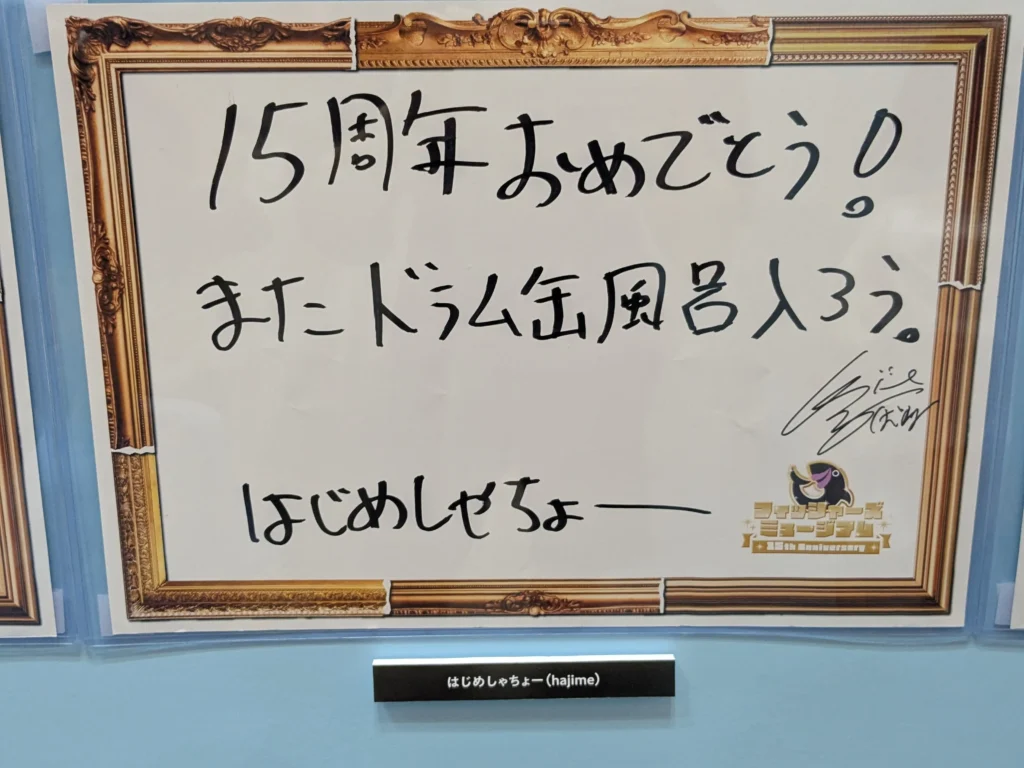 15周年おめでとう!
またドラム缶風呂入ろう。
はじめしゃちょー
フィッシャーズ
ミュージアム
15th Anniversary
はじめしゃちょー(hajime)